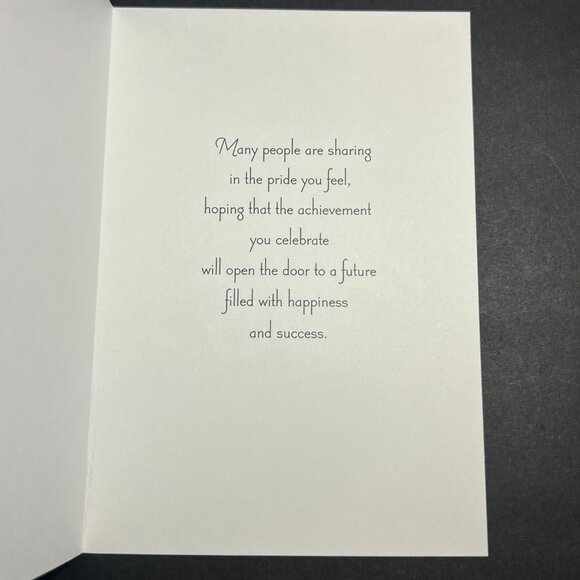 Many people are sharing
in the pride you feel,
hoping that the achievement
you celebrate
will open the door to a future
filled with happiness
and success.